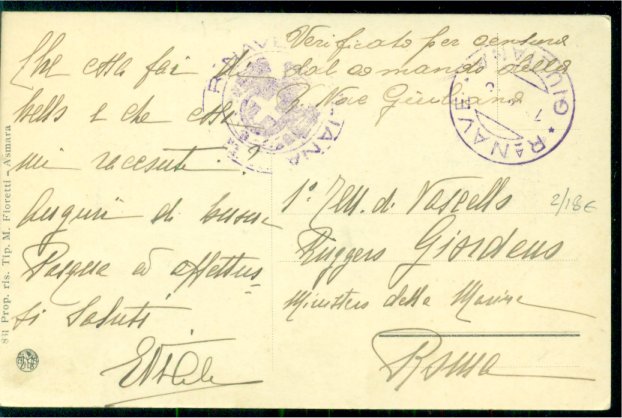 Che cosa fai di
bello e che cosa
mi racconti?
Auguri di buona
Pasqua ed affettuo-
si saluti
Verificato per censura
dal comando della
R. Nave Giuliana
R. NAVE GIULIANA
R. NAVE GIULIANA
1° Ten. di Vascello
Ruggero Giordano
Ministero della Marina
Roma
2/18€
831 Prop. ris. Tip. M. Fioretti - Asmara